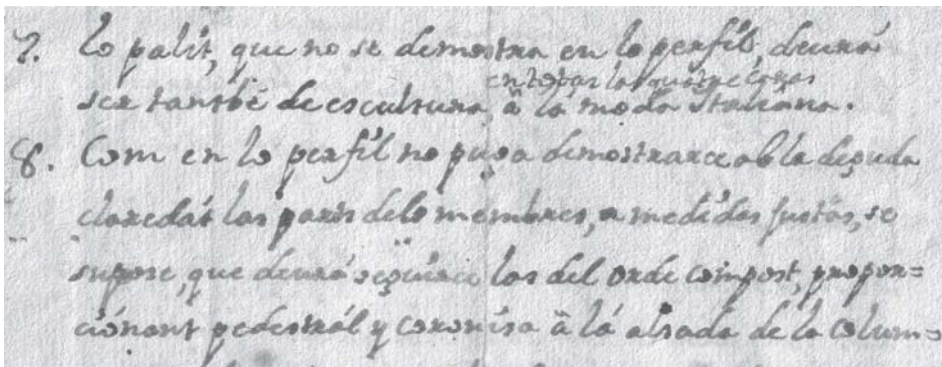 7. Lo palit, que no se demostra en lo perfil, deurá
en totas las quatre caras
ser també de escultura, à la moda Italiana.
8. Com en lo perfil no puga demostrarce ab la deguda
claredat las parts dels membres, a medidas justas, se
suposc, que deurá seguirce los del orde compost, propor=
ciónant pedestrál y cornisa à lá alsada de la colum=